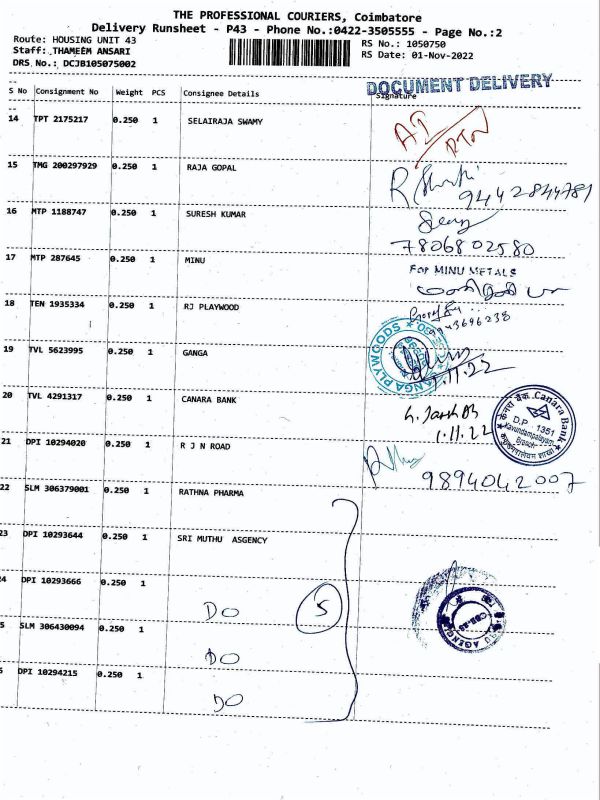 THE PROFESSIONAL COURIERS, Coimbatore
Delivery Runsheet - P43 - Phone No.:0422-3505555 - Page No.:2
Route: HOUSING UNIT 43 RS No.: 1050750
Staff: THAMEEM ANSARI RS Date: 01-Nov-2022
DRS No.: DCJB105075002
DOCUMENT DELIVERY
S No Consignment No Weight PCS Consignee Details Signature
14 TPT 2175217 0.250 1 SELAIRAJA SWAMY
RTN
15 TMG 200297929 0.250 1 RAJA GOPAL
9442844781
16 MTP 1188747 0.250 1 SURESH KUMAR
7806802580
17 MTP 287645 0.250 1 MINU
FOR MINU METALS
18 TEN 1935334 0.250 1 RJ PLAYWOOD
19 TVL 5623995 0.250 1 GANGA
GANGA PLYWOODS
1.11.22
20 TVL 4291317 0.250 1 CANARA BANK
1.11.22
केनरा बैंक Canara Bank
D.P. 1351
Kavundampalayam
Branch
21 DPI 10294020 0.250 1 R J N ROAD
9894042007
22 SLM 306379001 0.250 1 RATHNA PHARMA
23 DPI 10293644 0.250 1 SRI MUTHU ASGENCY
4 DPI 10293666 0.250 1 DO 5
5 SLM 306430094 0.250 1 DO
CBE-25
AGENCI
6 DPI 10294215 0.250 1 DO